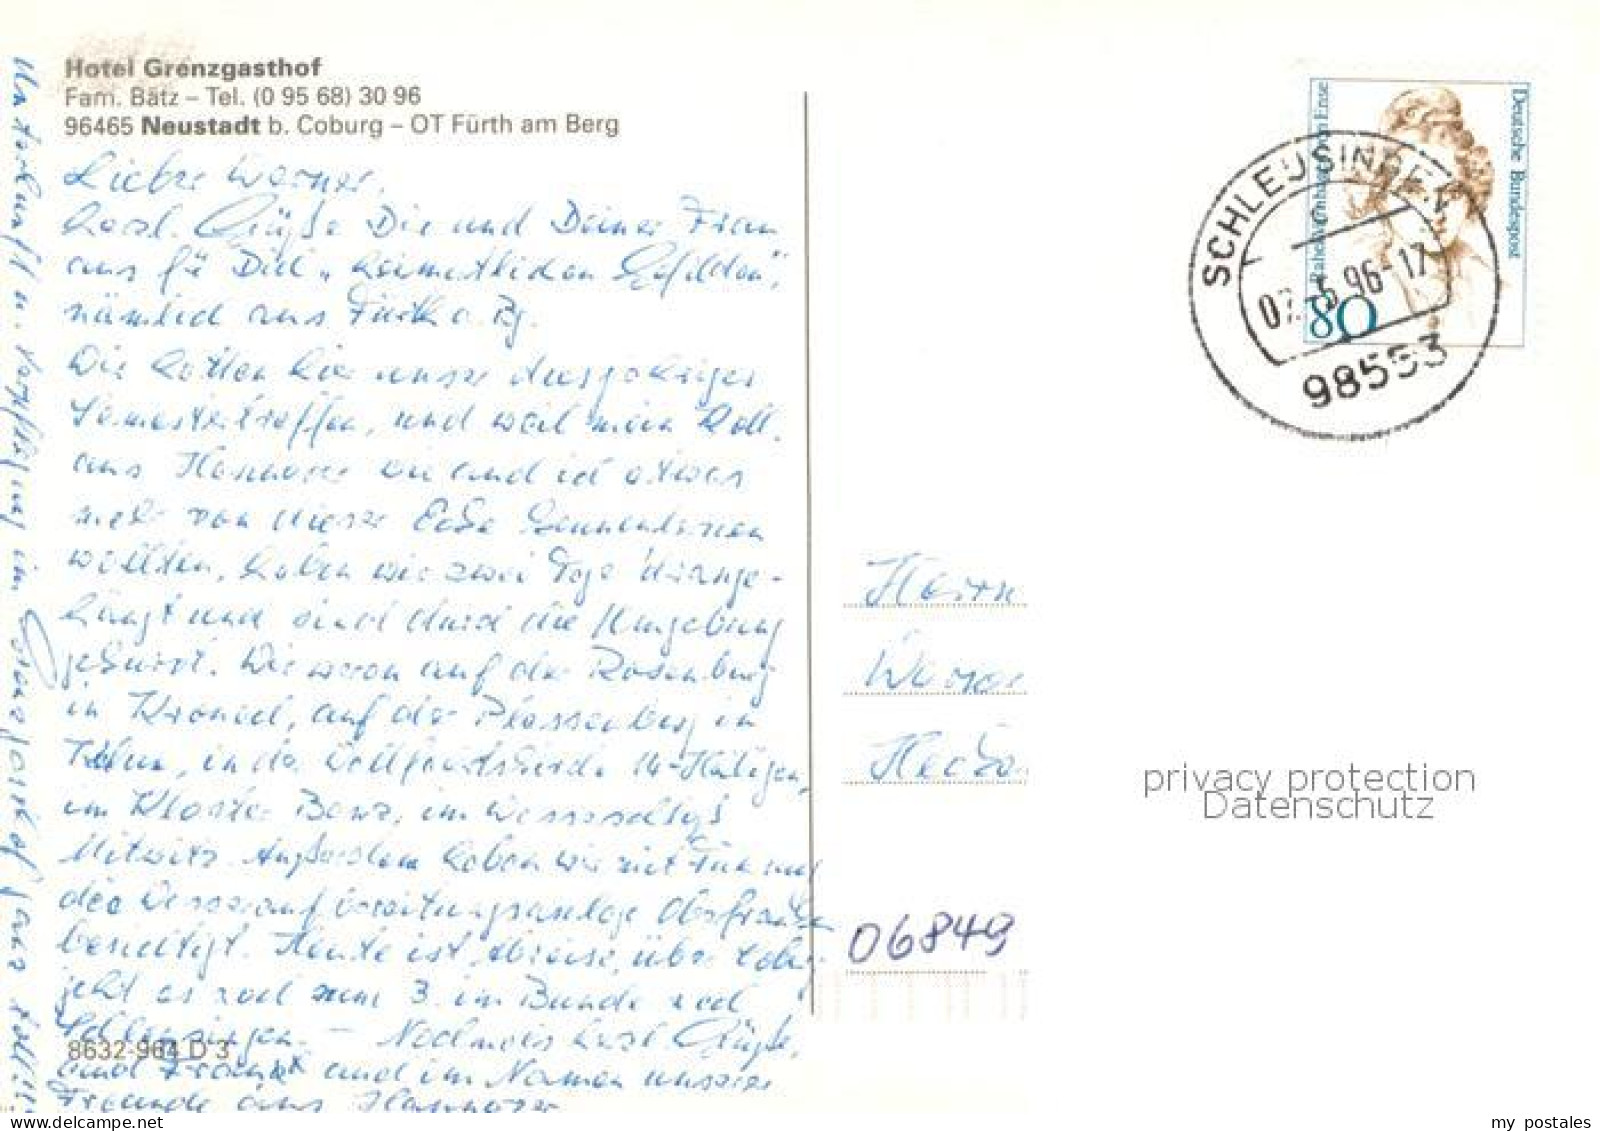 Hotel Grenzgasthof
Fam. Bätz – Tel. (0 95 68) 30 96
96465 Neustadt b. Coburg – OT Fürth am Berg
Lieber Werner,
herzl. Grüße Dir und Deiner Frau
aus für Dich „heimatlichen Gefilden",
nämlich aus Fürth a. Bg.
Wir hatten hier unser diesjähriges
Semestertreffen, und weil mein Koll.
aus Hannover und ich etwas
mehr von dieser Ecke kennenlernen
wollten, haben wir zwei Tage drange-
hängt und sind durch die Umgebung
gekurvt. Wir waren auf der Rosenburg
in Kronach, auf der Plassenburg in
in der Wallfahrtskirche 14-Heiligen,
im Kloster Banz, im Wasserschloß
Mitwitz. Außerdem haben wir mit
die Wasseraufbereitungsanlage
besichtigt. Heute ist Abreise, über
geht es zum 3. im Bunde nach
Schleusingen. – Nochmals herzl. Grüße,
und im Namen unserer
Freunde aus Hannover
Unterkunft u. Verpflegung im Grenzgasthof ganz toll!!
8632-964 D 3
Deutsche Bundespost
Rahel Varnhagen von Ense
80
SCHLEUSINGEN
96-17
98553
Herrn
Werner
06849
privacy protection
Datenschutz
my postales